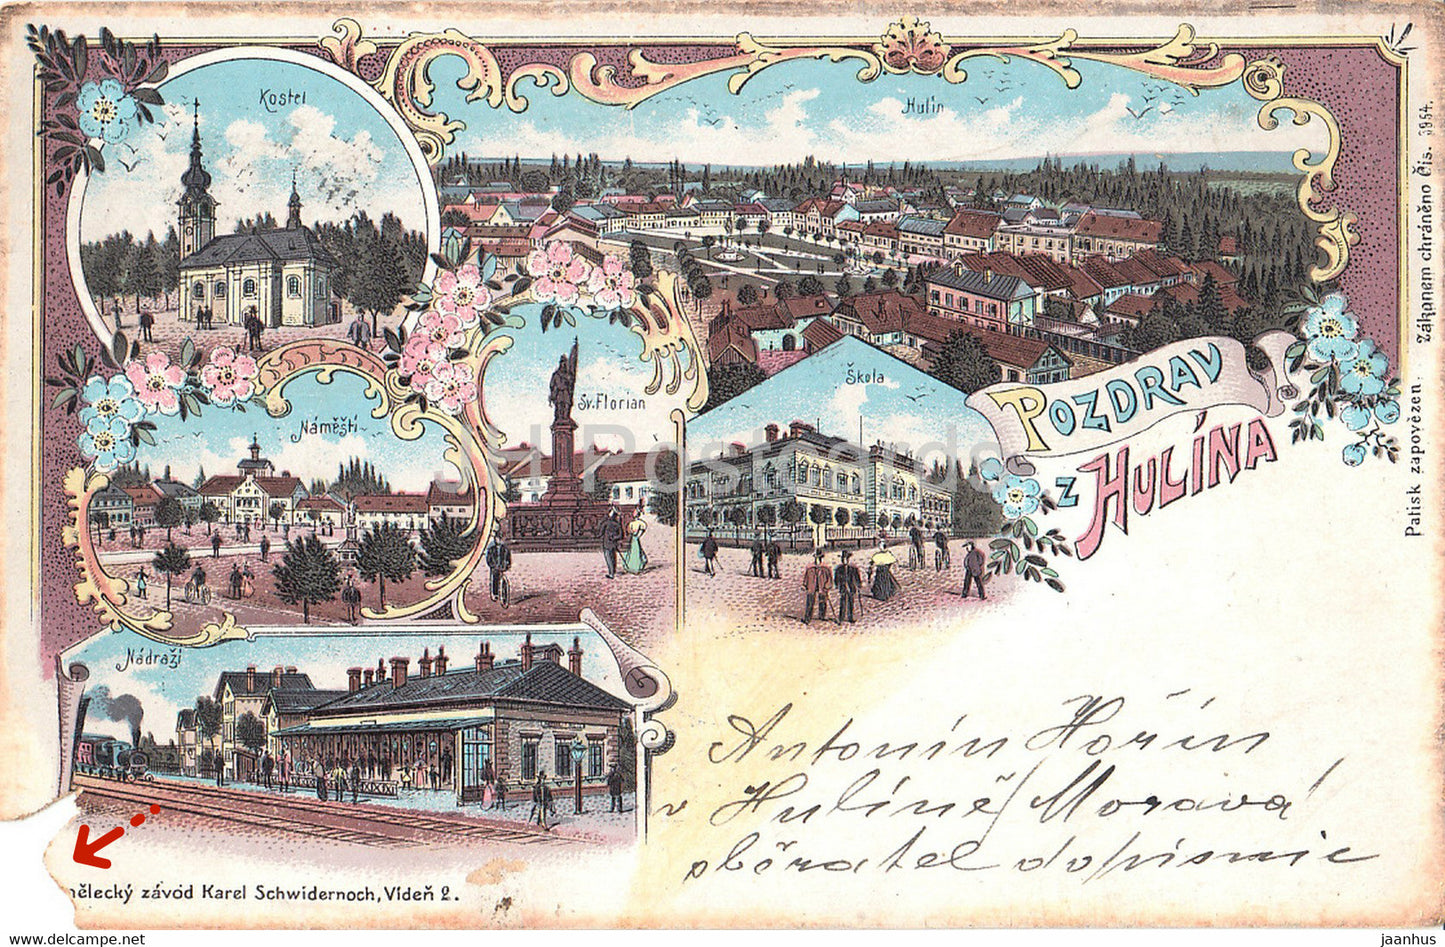 Kostel
Hulín
Sv. Florian
Škola
Náměstí
POZDRAV
Z HULÍNA
Nádraží
Antonín Hořín
v Hulíně/Morava/
sběratel dopisnic
nělecký závod Karel Schwidernoch, Vídeň 2.
Patisk zapovězen. Zákonem chráněno Čís. 3954.
JH Postcards
jaanhus
delcampe.net